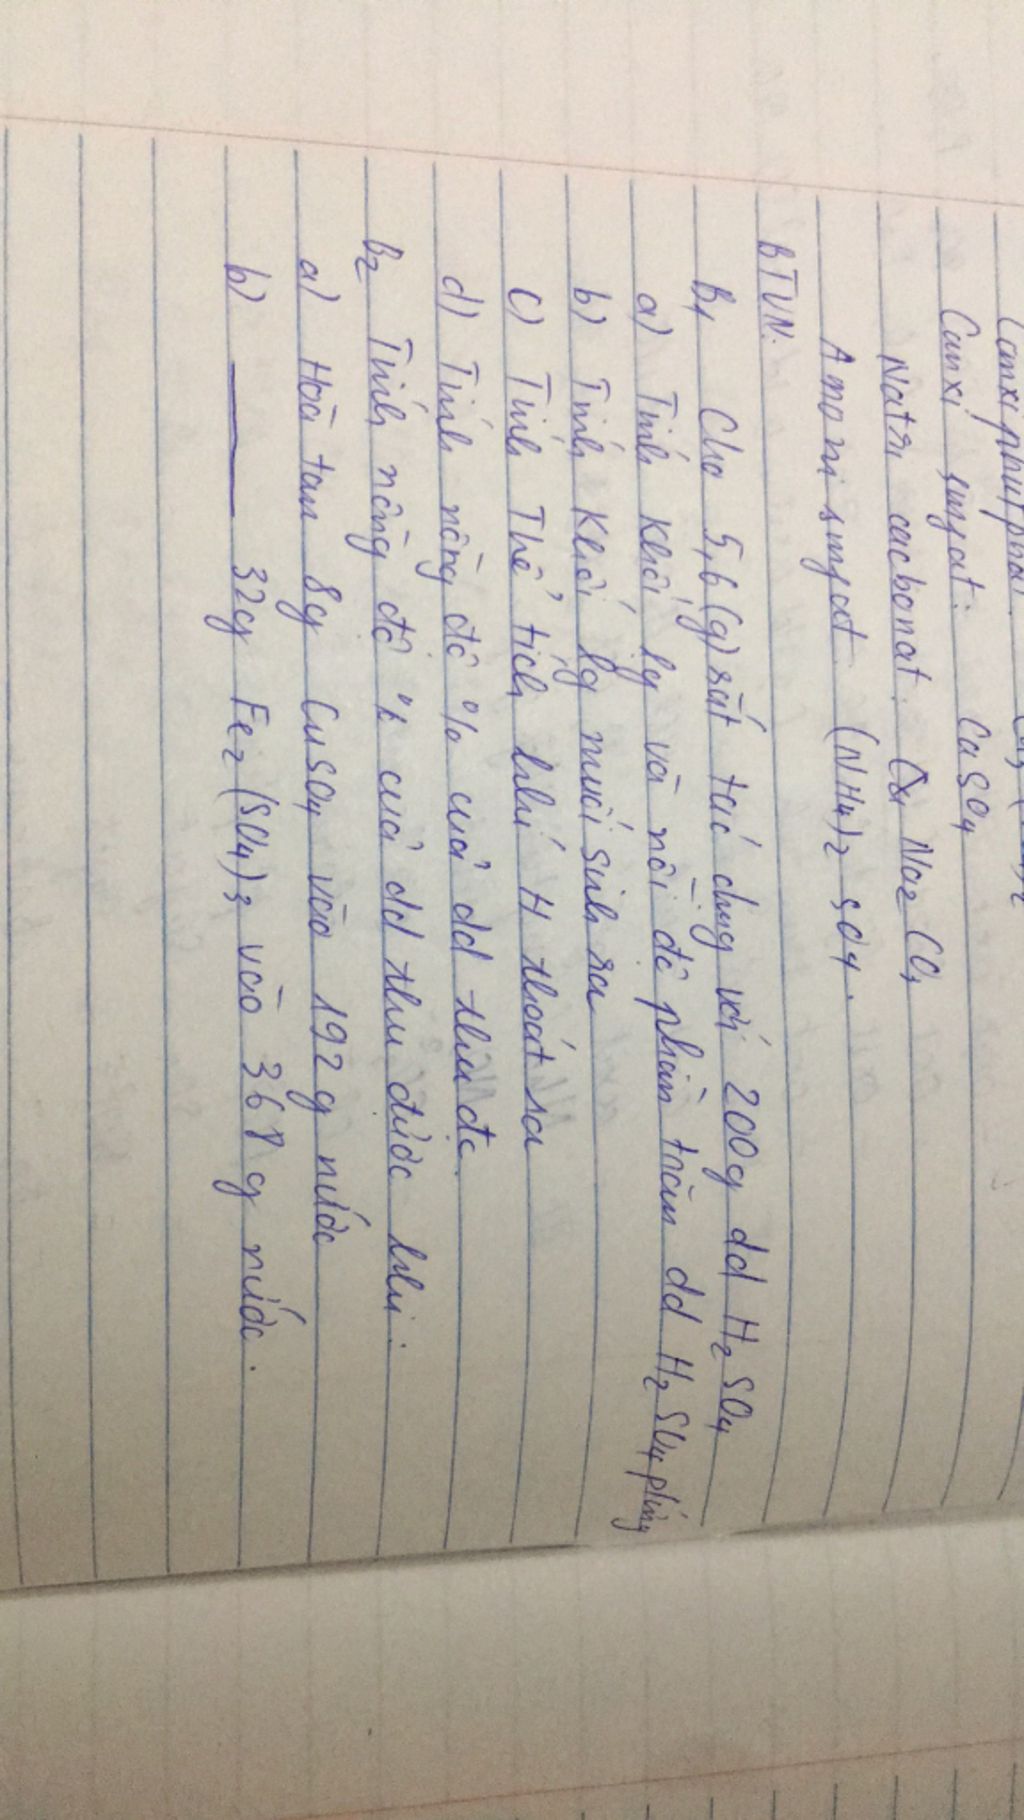 Canxi sunfat: CaSO4
Natri cacbonat: Na2 CO3
Amoni sunfat (NH4)2 SO4.
BTVN:
B1 Cho 5,6 (g) sắt tác dụng với 200g dd H2SO4
a) Tính khối lg và nồi độ phần trăm dd H2SO4 phứng
b) Tính khối lg muối sinh ra
c) Tính Thể tích khí H thoát ra
d) Tính nồng độ % của dd thu đc.
B2 Tính nồng độ % của dd thu được khi:
a) Hòa tan 8g CuSO4 vào 192g nước
b) ___ 32g Fe2(SO4)3 vào 368g nước.